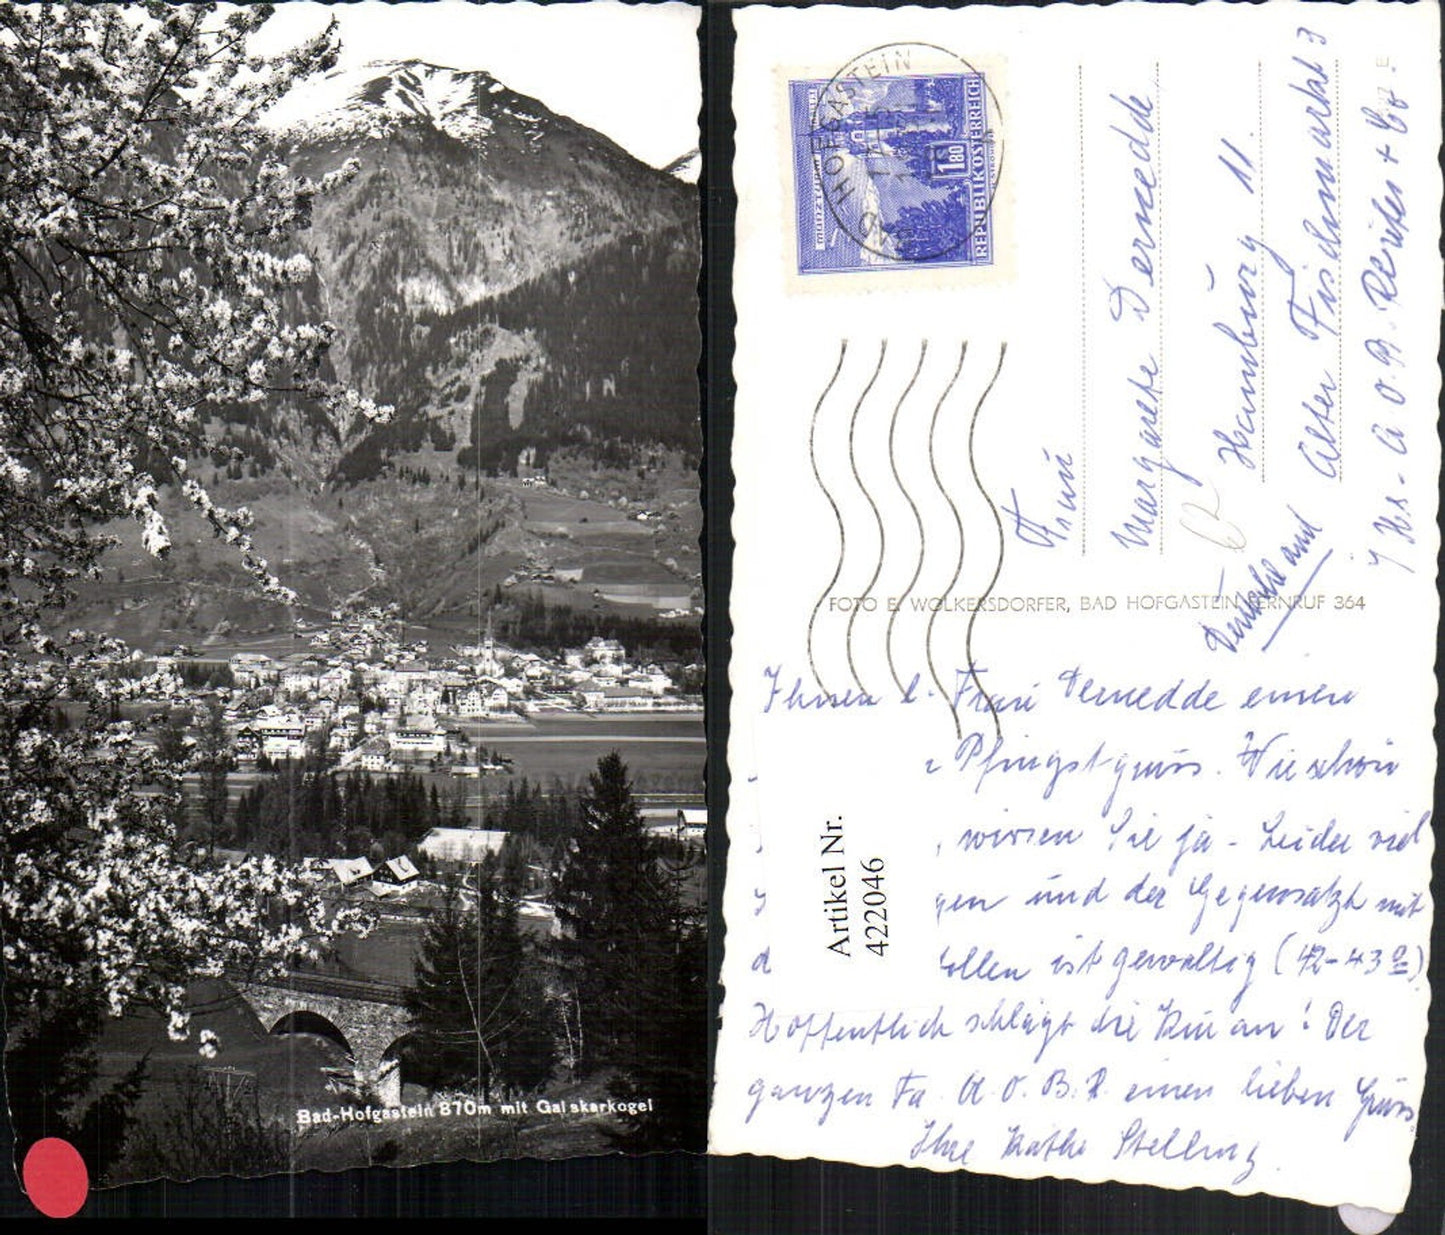 Bad-Hofgastein 870m mit Gaiskarkogel
HOFGASTEIN
REPUBLIK ÖSTERREICH
1.80
Frau
Margarete Dernedde
Hamburg 11.
Alter Fischmarkt 3
Deutschland
FOTO E. WOLKERSDORFER, BAD HOFGASTEIN FERNRUF 364
Artikel Nr.
422046
Ihnen l. Frau Dernedde einen
Pfingstgruss. Wie schön
, wissen Sie ja - Leider viel
gen und der Gegensatz mit
d ollen ist gewaltig (42-43°)
Hoffentlich schlägt die Kur an! Der
ganzen Fa. A.O.B.R. einen lieben Gruss
Ihre Käthe Stelling